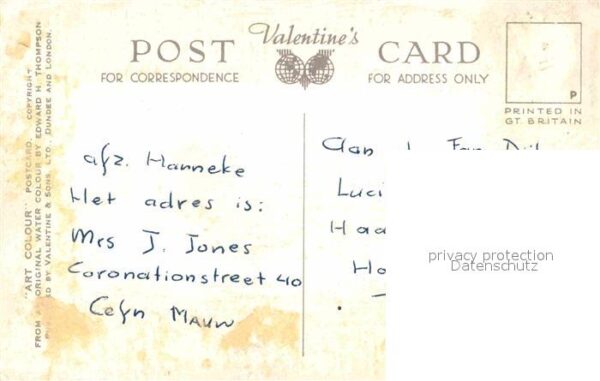 Valentine's
POST CARD
FOR CORRESPONDENCE
FOR ADDRESS ONLY
P
PRINTED IN
GT. BRITAIN
"ART COLOUR" POSTCARD. COPYRIGHT
FROM AN ORIGINAL WATER COLOUR BY EDWARD H. THOMPSON
BY VALENTINE & SONS, LTD. DUNDEE AND LONDON.
afz. Hanneke
Het adres is:
Mrs J. Jones
Coronationstreet 40
Cefn Mauw
Aan
Luci
Haa
Ho
privacy protection
Datenschutz